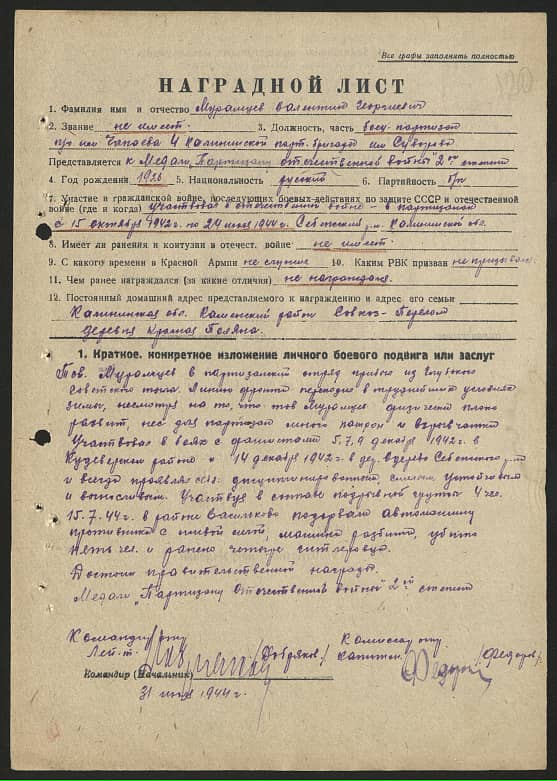 Все графы заполнять полностью
120
НАГРАДНОЙ ЛИСТ
1. Фамилия имя и отчество Мурамцев Валентин Георгиевич
2. Звание не имеет. 3. Должность, часть боец-партизан
п/о им Чапаева 4 Калининской парт. бригады им Суворова
Представляется к Медали, Партизану отечественной войны 2ой степени
4. Год рождения 1926 5. Национальность русский 6. Партийность б/п
7. Участие в гражданской войне, последующих боевых действиях по защите СССР и отечественной
войне (где и когда) участвовал в отечественной войне в партизанах
с 15 октября 1942 г. по 24 июля 1944 г. Себежский р-н. Калининской обл.
8. Имеет ли ранения и контузии в отечест. войне не имеет.
9. С какого времени в Красной Армии не служил 10. Каким РВК призван не призывался
11. Чем ранее награждался (за какие отличия) не награждался.
12. Постоянный домашний адрес представляемого к награждению и адрес его семьи
Калининская обл. Каменский район Совхоз-Перелом
деревня Красная Поляна.
1. Краткое, конкретное изложение личного боевого подвига или заслуг
Тов. Мурамцев в партизанский отряд прибыл из глубокого
советского тыла. Линию фронта переходил в труднейших условиях
зимы, несмотря на то, что тов Мурамцев физически плохо
развит, нес для партизан много патрон и взрывчатки
Участвовал в боях с фашистами 5,7,9 декабря 1942 г. в
Кудеверском районе и 14 декабря 1942 г. в дер. Себежского р-на
и всегда проявлял себя дисциплинированным смелым, устойчивым
и выносливым. Участвуя в составе подрывной группы 4 чел.
15.7.44 г. в районе Васильково подорвали автомашину
противника с живой силой, машина разбита, убито
пять чел. и ранено четыре гитлеровца.
Достоин правительственной награды.
Медали "Партизану Отечественной войны" 2ой степени
Командир отр. Комиссар отр.
Лей-т. /Добряков/ капитан /Федоров/
Командир (Начальник)
31 июля 1944 г.